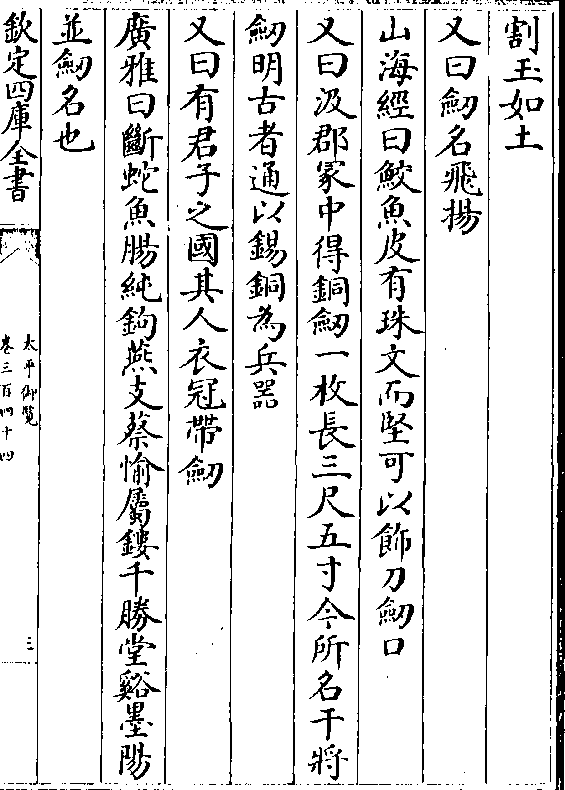 割玉如土
又曰劒名飛揚
山海經曰鮫魚皮有珠文而堅可以飾刀劒口
又曰汲郡冢中得銅劒一枚長三尺五寸今所名干將
劒明古者通以錫銅為兵器
又曰有君子之國其人衣冠帶劒
廣雅曰斷蛇魚腸純鉤燕支蔡愉屬鏤干勝堂谿墨陽
並劒名也
欽定四庫全書
太平御覽
卷三百四十四
三